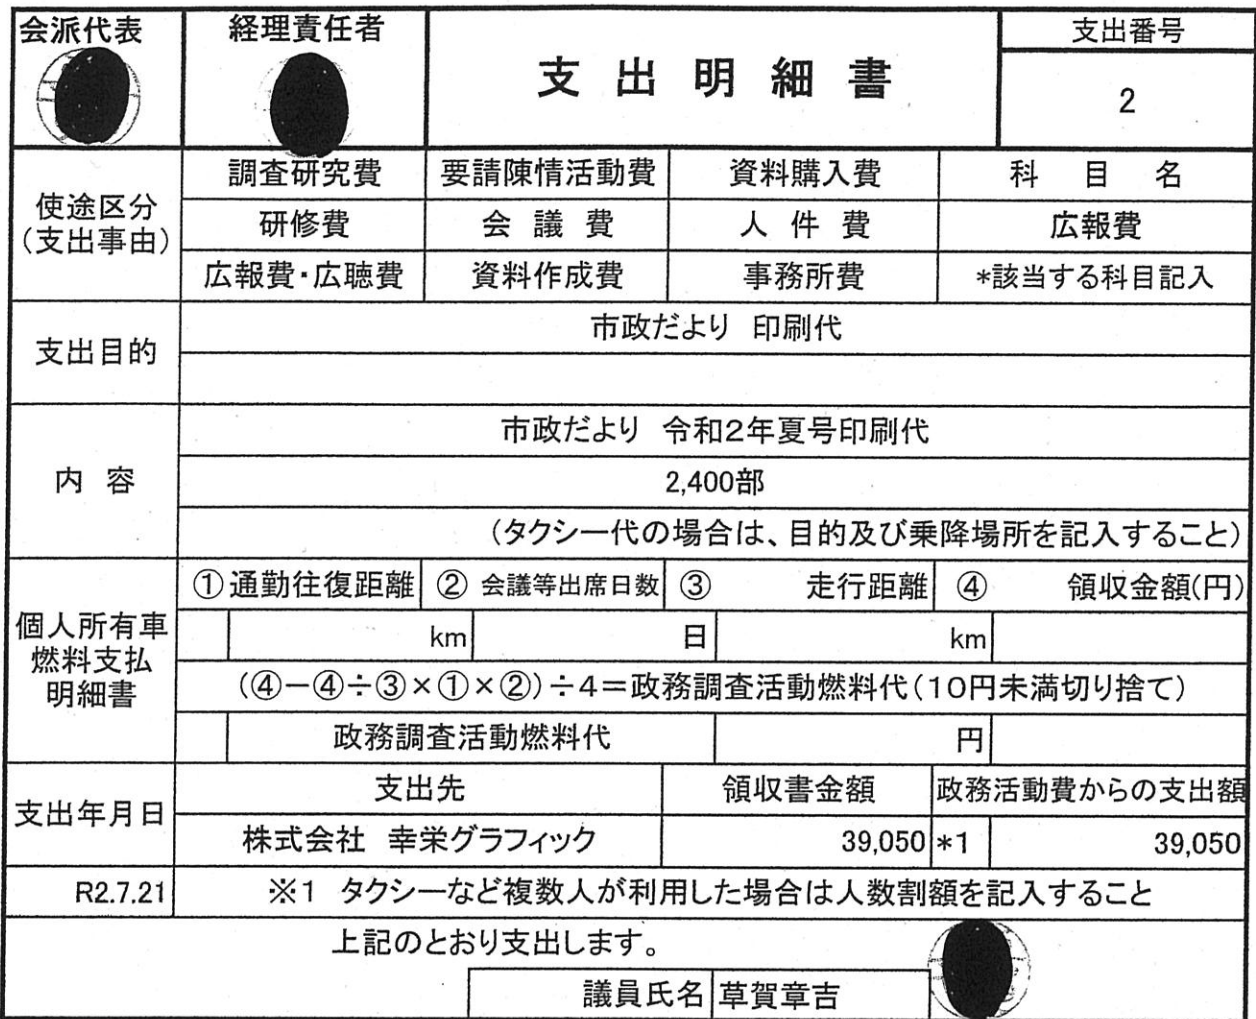 会派代表
経理責任者
支出明細書
支出番号
2
使途区分
(支出事由)
調査研究費 要請陳情活動費 資料購入費 科目名
研修費 会議費 人件費 広報費
広報費・広聴費 資料作成費 事務所費 *該当する科目記入
支出目的
市政だより 印刷代
内容
市政だより 令和2年夏号印刷代
2,400部
(タクシー代の場合は、目的及び乗降場所を記入すること)
個人所有車
燃料支払
明細書
①通勤往復距離 ② 会議等出席日数 ③ 走行距離 ④ 領収金額(円)
km 日 km
(④-④÷③×①×②)÷4=政務調査活動燃料代(10円未満切り捨て)
政務調査活動燃料代 円
支出年月日
支出先 領収書金額 政務活動費からの支出額
株式会社 幸栄グラフィック 39,050 *1 39,050
R2.7.21 ※1 タクシーなど複数人が利用した場合は人数割額を記入すること
上記のとおり支出します。
議員氏名 草賀章吉